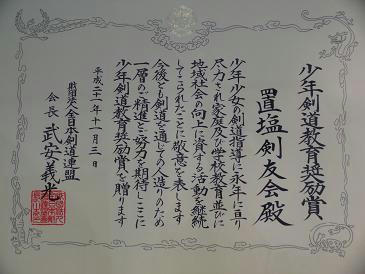 少年剣道教育奨励賞
置塩剣友会殿
少年少女の剣道指導に永年に亘り
尽力され家庭及び学校教育並びに
地域社会の向上に資する活動を継続
してこられたことに敬意を表します
今後とも剣道を通じての人造りのため
一層のご精進とご努力を期待しここに
少年剣道教育奨励賞を贈ります
平成二十一年十一月三日
財団法人全日本剣道連盟
会長 武安義光